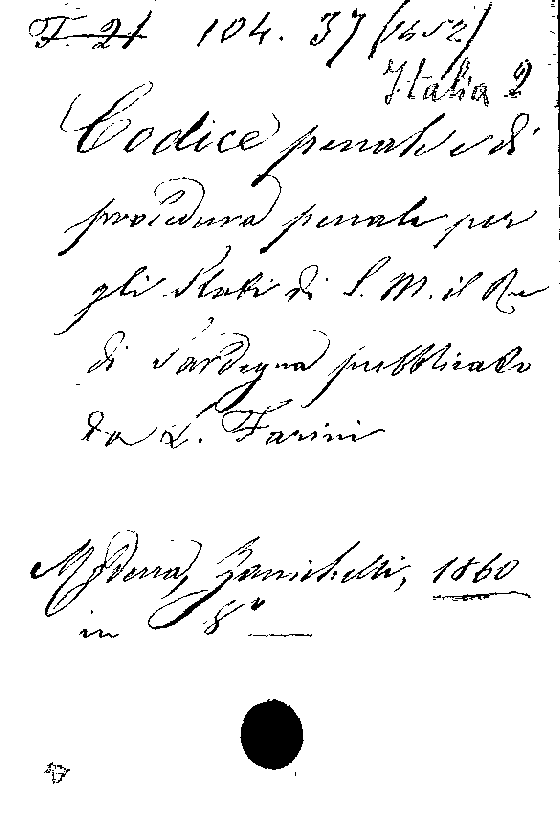 F. 21 104. 37 (1452)
Italia 2
Codice penale e di
procedura penale per
gli Stati di S. M. il Re
di Sardegna pubblicato
da L. Farini
Modena, Zanichelli, 1860
in 8°